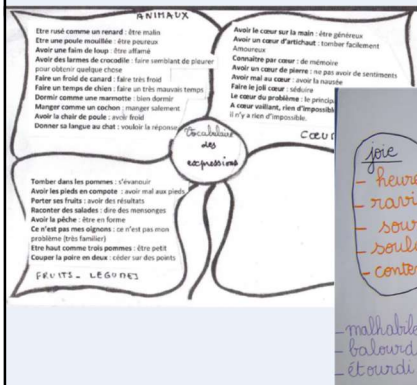 ANIMAUX
Etre rusé comme un renard : être malin
Etre une poule mouillée : être peureux
Avoir une faim de loup : être affamé
Avoir des larmes de crocodile : faire semblant de pleurer
pour obtenir quelque chose
Faire un froid de canard : faire très froid
Faire un temps de chien : faire très mauvais temps
Dormir comme une marmotte : bien dormir
Manger comme un cochon : manger salement
Avoir la chair de poule : avoir froid
Donner sa langue au chat : vouloir la réponse
Avoir le cœur sur la main : être généreux
Avoir un cœur d'artichaut : tomber facilement
Amoureux
Connaitre par cœur : de mémoire
Avoir un cœur de pierre : ne pas avoir de sentiments
Avoir mal au cœur : avoir la nausée
Faire le joli cœur : séduire
Le cœur du problème : le principa
A cœur vaillant, rien d'impossibl
il n'y a rien d'impossible.
Cœur
Vocabulaire
des
expressions
Tomber dans les pommes : s'évanouir
Avoir les pieds en compote : avoir mal aux pieds
Porter ses fruits : avoir des résultats
Raconter des salades : dire des mensonges
Avoir la pêche : être en forme
Ce n'est pas mes oignons : ce n'est pas mon
problème (très familier)
Etre haut comme trois pommes : être petit
Couper la poire en deux : céder sur des points
FRUITS - LEGUMES
joie
- heure
- ravi
- sour
- soul
- conte
- malhabile
- balourd
- étourdi